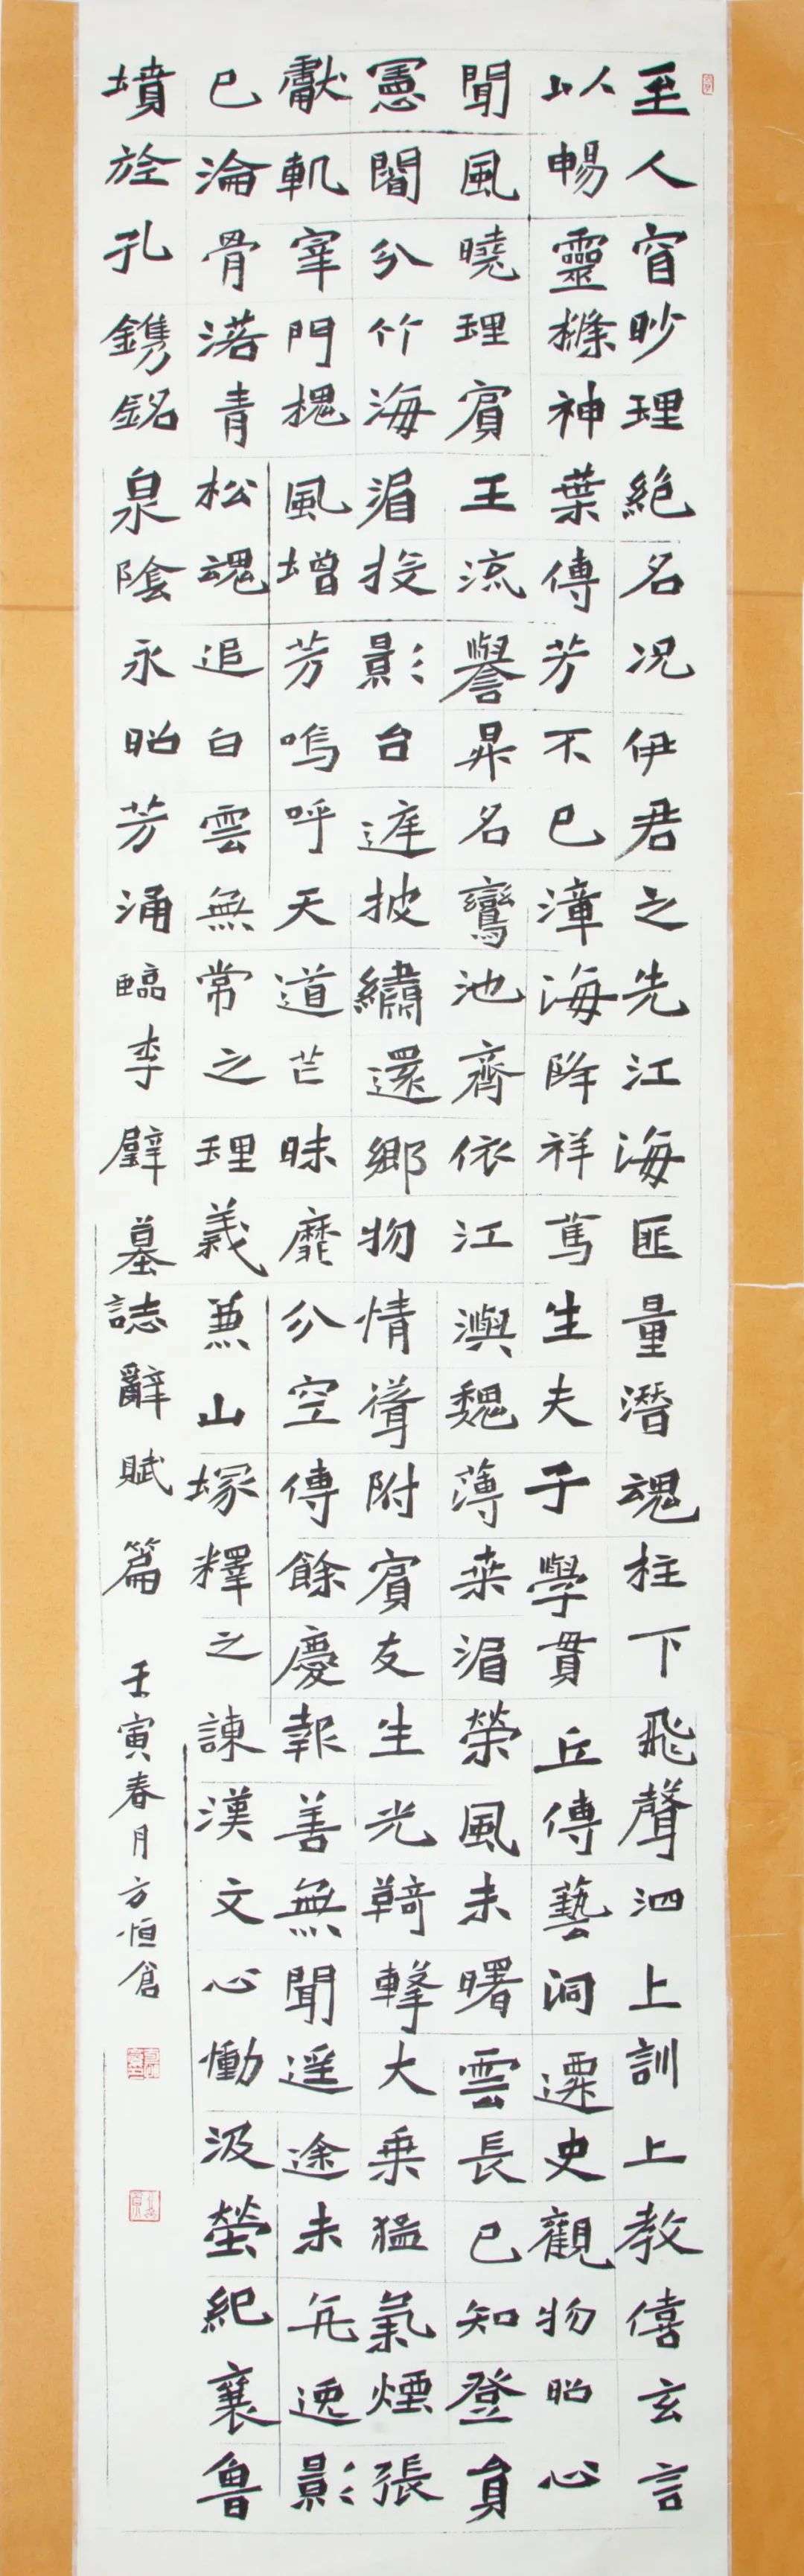 至人窅眇理絶名况伊君之先江海匪量潛魂柱下飛聲泗上訓上教僖玄言
以暢靈條神葉傳芳不已漳海降祥篤生夫子學貫丘傳藝洞遷史觀物昭心
聞風曉理賓王流譽昇名鸞池齊依江澳魏薄桒湄榮風未曙雲長已知登員
憲閣分竹海湄投影台遅披繡還鄉物情聳附賓友生光鞫擎大乗猛氣煙張
獻軏宰門槐風增芳嗚呼天道芒昧靡分空傳餘慶報善無聞遥途未𠃵逸影
已淪骨渃青松魂追白雲無常之理義兼山塚釋之諫漢文心慟汲塋紀襄魯
墳於孔鎸銘泉陰永昭芳涌臨李璧墓誌辭賦篇 壬寅春月方恒倉